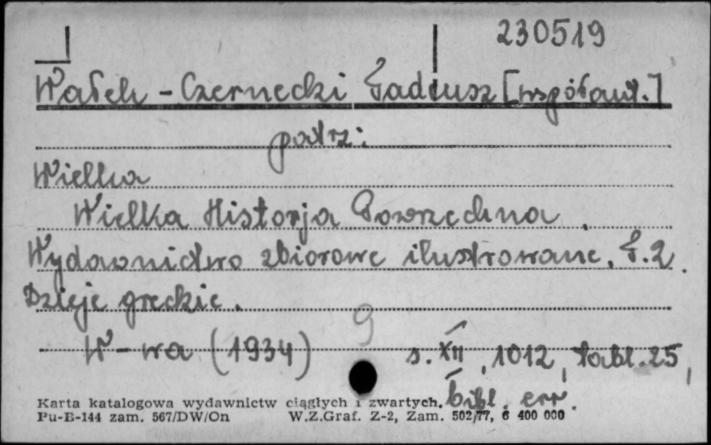 230519
Wałek-Czernecki Tadeusz [współaut.]
patrz:
Wielka
Wielka Historja Powszechna.
Wydawnictwo zbiorowe ilustrowane. T.2.
Dzieje greckie.
9
W-wa (1934) s. XII, 1012, tabl. 25,
bibl. err.
Karta katalogowa wydawnictw ciągłych i zwartych.
Pu-B-144 zam. 567/DW/On W.Z.Graf. Z-2, Zam. 502/77, 6 400 000